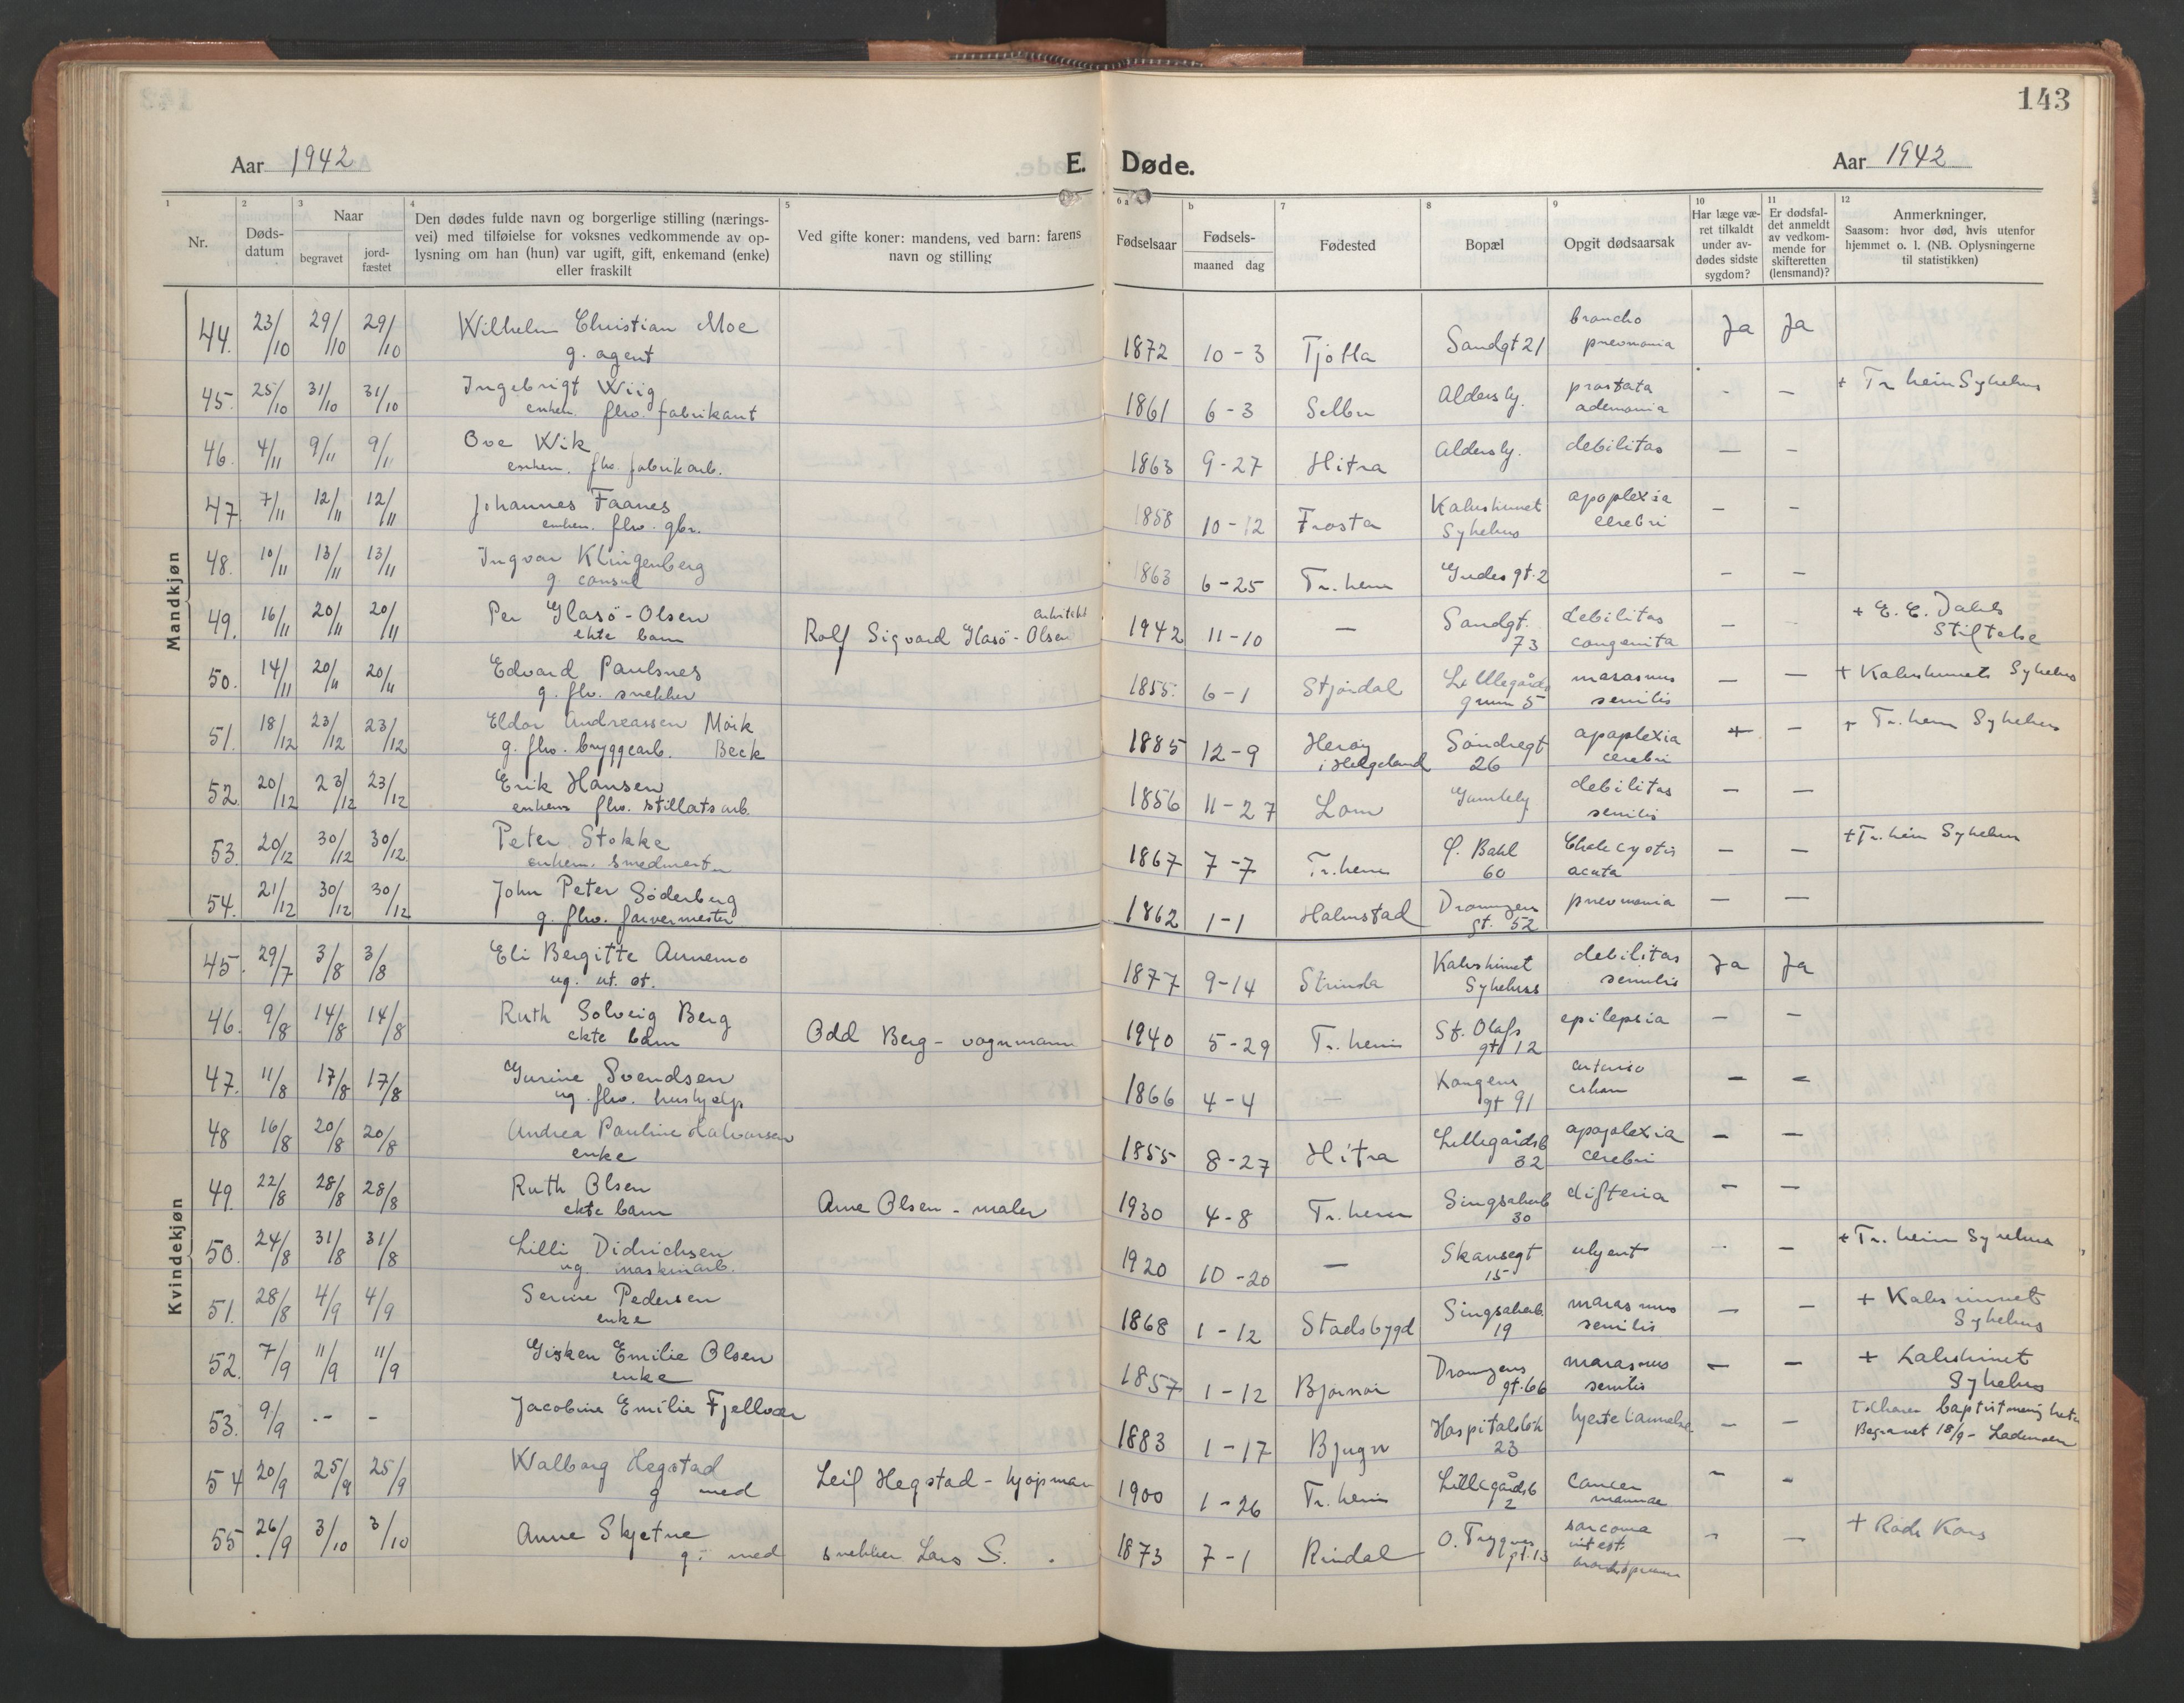 143
Aar 1942
E. Døde.
Aar 1942
1 Nr.
2 Dødsdatum
3 Naar begravet jordfæstet
4 Den dødes fulde navn og borgerlige stilling (næringsvei) med tilføielse for voksnes vedkommende av oplysning om han (hun) var ugift, gift, enkemand (enke) eller fraskilt
5 Ved gifte koner: mandens, ved barn: farens navn og stilling
6 a Fødselsaar
b Fødsels- maaned dag
7 Fødested
8 Bopæl
9 Opgit dødsaarsak
10 Har læge været tilkaldt under avdødes sidste sygdom?
11 Er dødsfaldet anmeldt av vedkommende for skifteretten (lensmand)?
12 Anmerkninger, Saasom: hvor død, hvis utenfor hjemmet o. l. (NB. Oplysningerne til statistikken)
Mandkjøn
44. 23/10 29/10 29/10 Wilhelm Christian Moe g. agent 1872 10-3 Tjøtta Sandgt 21 broncho pneumonia Ja Ja
45. 25/10 31/10 31/10 Ingebrigt Wiig enkem. fhv. fabrikant 1861 6-3 Selbu Aldershj. prostata - - + Tr.heim Sykehus
46. 4/11 9/11 9/11 Ove Wik enkem. fhv. fabrikarb. 1863 9-27 Hitra Aldershj. debilitas - -
47. 7/11 12/11 12/11 Johannes Faanes enkem. fhv. gbr. 1858 10-12 Frosta Sykehus apoplexia cerebri - -
48. 10/11 13/11 13/11 Ingvar Klingenberg g. consul 1863 6-25 Tr.heim Gudes gt. 2 - -
49. 16/11 20/11 20/11 Per Glasö-Olsen ekte barn Rolf Sigvard Glasö-Olsen arkitekt 1942 11-10 - Sandgt. 73 debilitas congenita - - + E. C. Dahls Stiftelse
50. 14/11 20/11 20/11 Edvard Paulsnes g. fhv. snekker 1855 6-1 Stjördal Lillegårds grunn 5 marasmus senilis - - + Sykehus
51. 18/12 23/12 23/12 Eldor Andreassen Mörk Beck g. fhv. bryggearb. 1885 12-9 Heröy i Helgeland Söndregt 26 apoplexia cerebri + - + Tr.heim Sykehus
52. 20/12 23/12 23/12 Erik Hansen enkem fhv. stillatsarb. 1856 11-27 Lom Gamlehj debilitas senilis - -
53. 20/12 30/12 30/12 Peter Stokke enkem. smedmester 1867 7-7 Tr.heim 60 acuta - - + Tr.heim Sykehus
54. 21/12 30/12 30/12 John Peter Söderberg g. fhv. farvermester 1862 1-1 Halmstad Dronningen gt. 52 pneumonia - -
Kvindekjøn
45. 29/7 3/8 3/8 Eli Bergitte Aunemo ug. 1877 9-14 Strinda Sykehus debilitas senilis Ja Ja
46. 9/8 14/8 14/8 Ruth Solveig Berg ekte barn Odd Berg - vognmann 1940 5-29 Tr.heim St. Olafs gt 12 epilepsia - -
47. 11/8 17/8 17/8 Gurine Svendsen ug. fhv. hushjelp 1866 4-4 - Kongens gt 91 - -
48 16/8 20/8 20/8 Andrea Pauline Halvorsen enke 1855 8-27 Hitra Lillegårdsb 32 apoplexia cerebri - -
49. 22/8 28/8 28/8 Ruth Olsen ekte barn Arne Olsen - maler 1930 4-8 Tr.heim Singsakerb 30 difteria - -
50. 24/8 31/8 31/8 Lilli Didrichsen ug. maskinarb. 1920 10-20 - Skansegt 15 ukjent - - + Tr.heim Sykehus
51. 28/8 4/9 4/9 Serine Pedersen enke 1868 1-12 Stadsbygd Singsakerb. 19 marasmus senilis - - + Sykehus
52. 7/9 11/9 11/9 Gisken Emilie Olsen enke 1857 1-12 Bjørnør Dronningens gt. 66 marasmus senilis - - + Sykehus
53. 9/9 - - Jacobine Emilie Fjellvær 1883 1-17 Bjugn Hospitalsløk. 23 hjertelammelse - - baptistmenighet Begravet 18/9 - Lademoen
54 20/9 25/9 25/9 Walborg Hegstad g med Leif Hegstad - kjøpman 1900 1-26 Tr.heim Lillegårdsb 2 cancer mammae - -
55 26/9 3/10 3/10 Anne Skjetne g. med snekker Lars S. 1873 7-1 Rindal O. Trygves gt. 13 sarcoma - - + Röde Kors